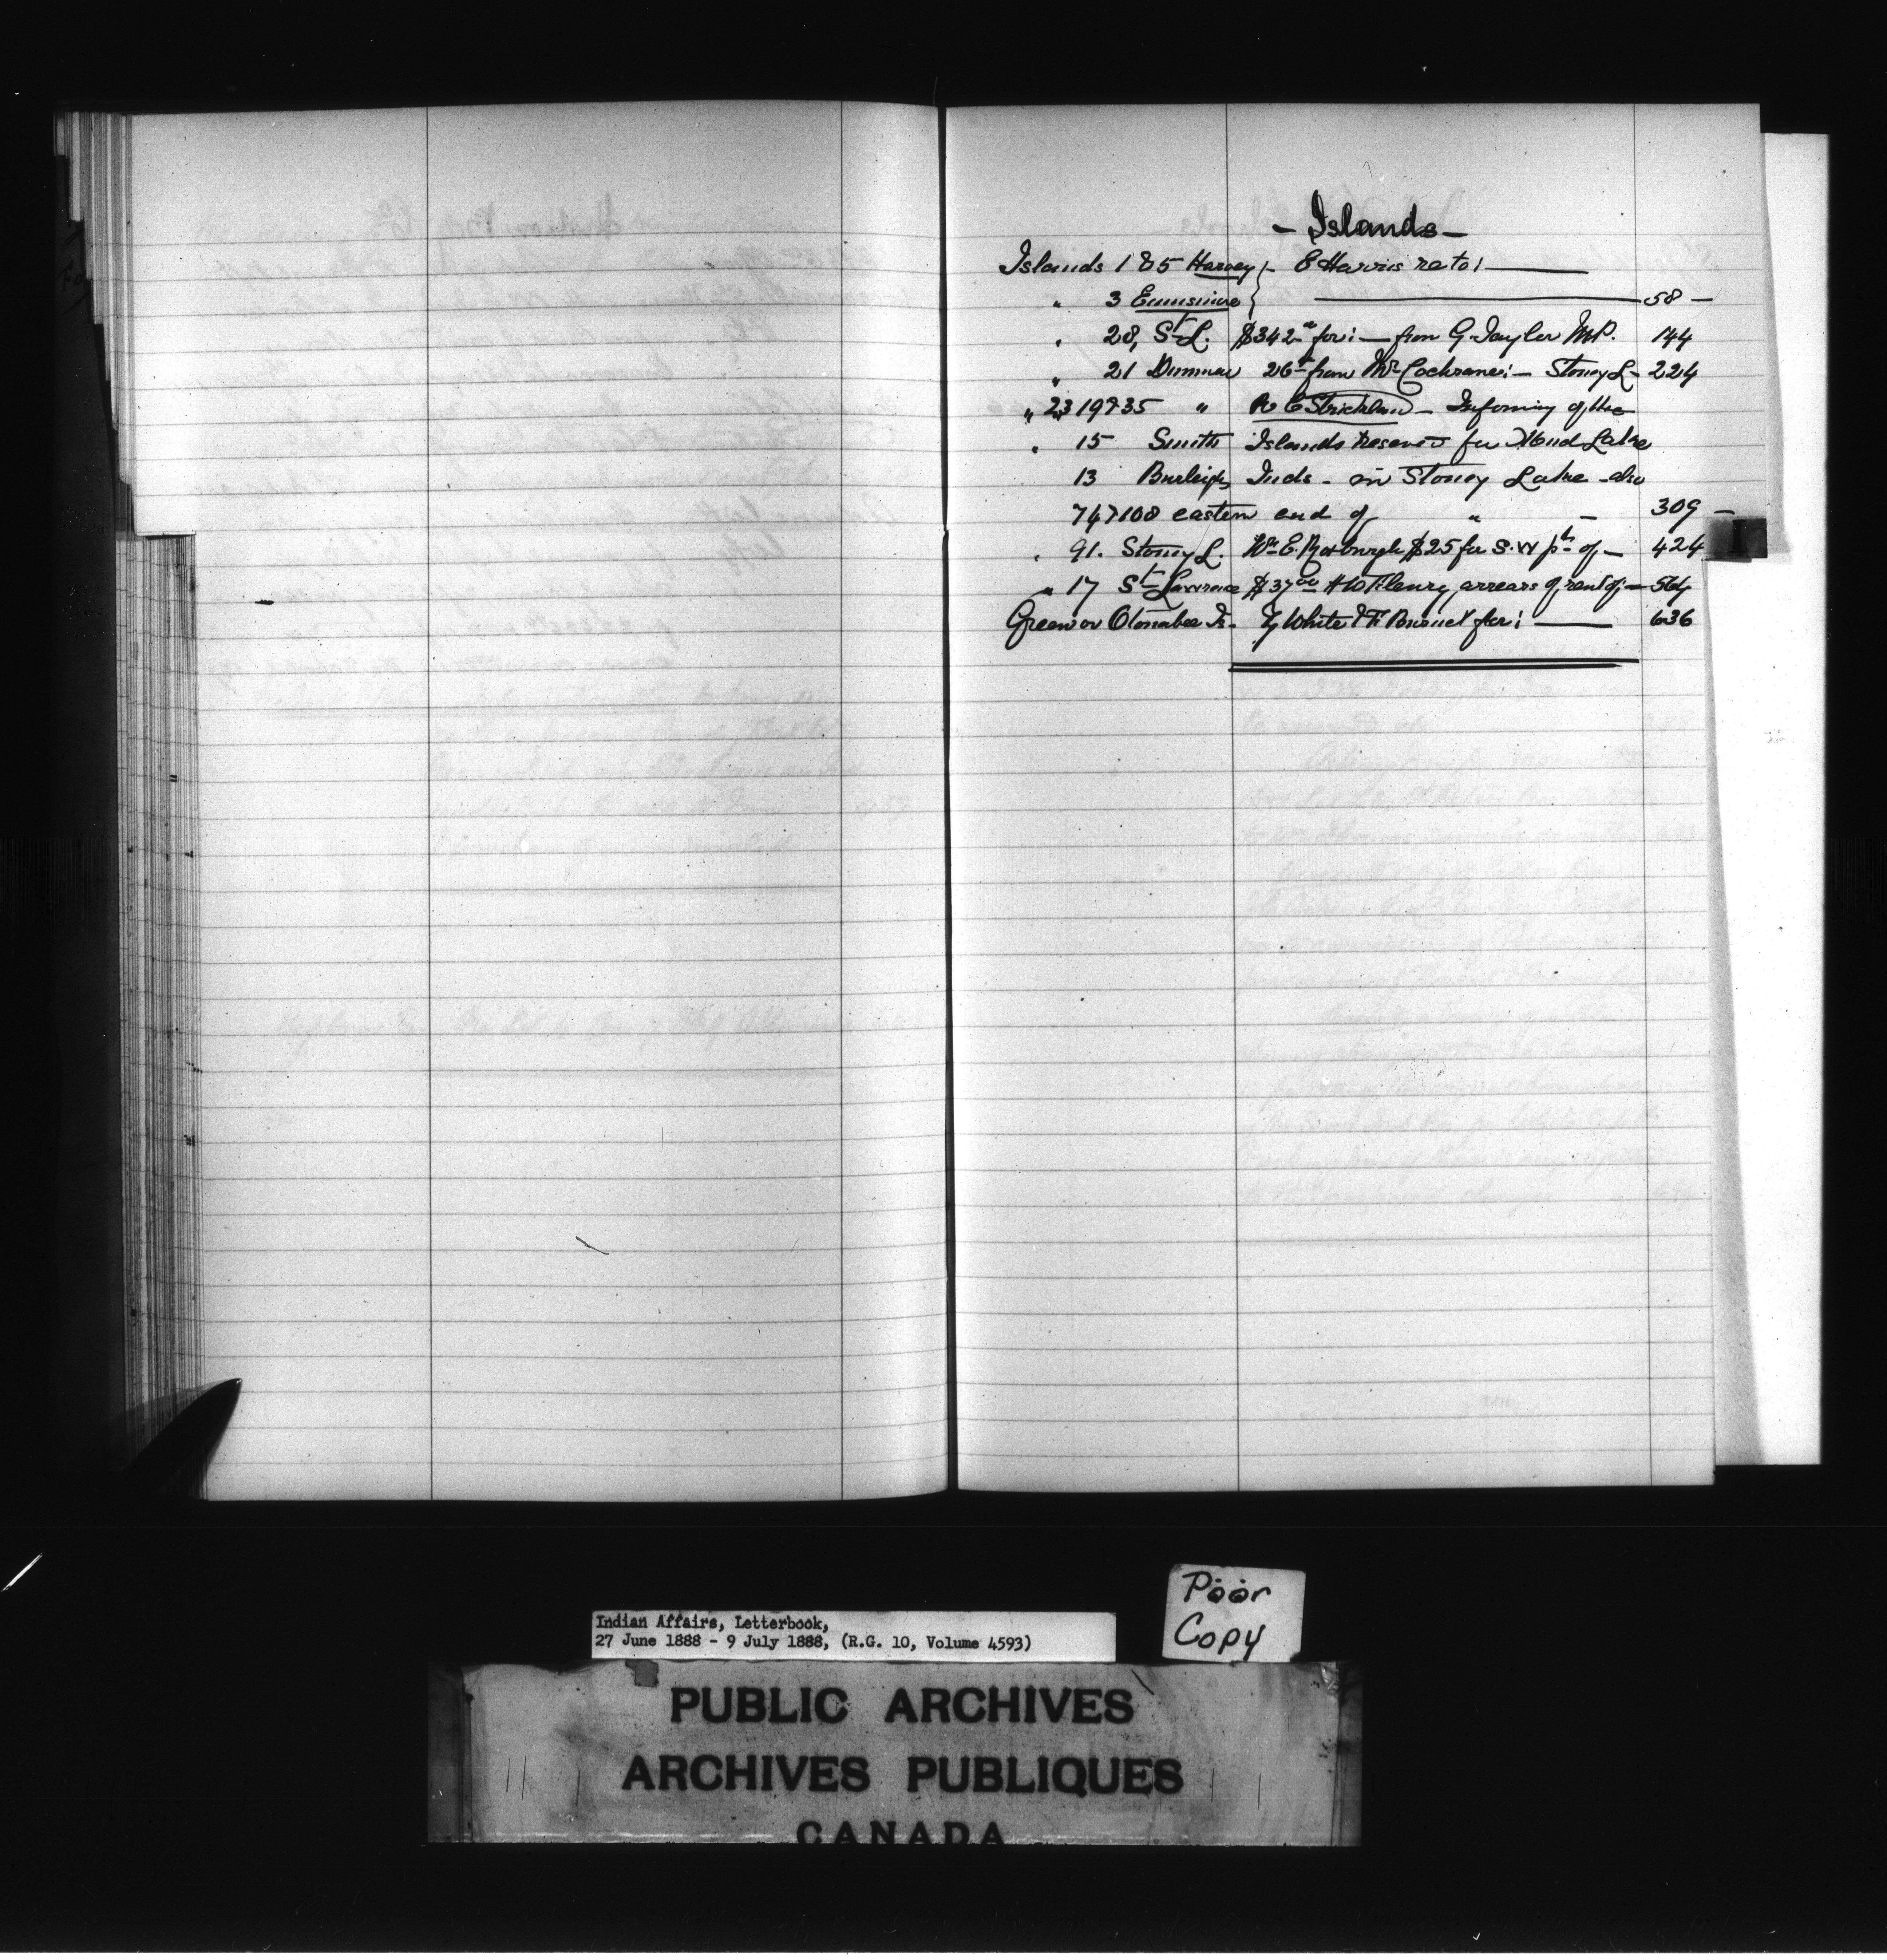 - Islands -
Islands 1 & 5 Harvey } - E Harris re to :
" 3 Ennismore } 58 -
" 28, St L. $342 for : - from G. Taylor M.P. 144
" 21 Dummer 26 from Mr Cochrane : - Stoney L - 224
" 23 19 & 35 " R C Strickland - Informing of the
" 15 Smith Islands reserved for Mud Lake
13 Burleigh Inds - in Stoney Lake - also
74 & 108 eastern end of " - 309 -
" 91. Stoney L. Wm E. Roxburgh $25 for S.W pt of - 424
" 17 St Lawrence $37 00 Henry arrears of rent of : - 564
Green or Otonabee Is - White & F for : 636
Indian Affairs, Letterbook,
27 June 1888 - 9 July 1888, (R.G. 10, Volume 4593)
Poor
Copy
PUBLIC ARCHIVES
ARCHIVES PUBLIQUES
CANADA